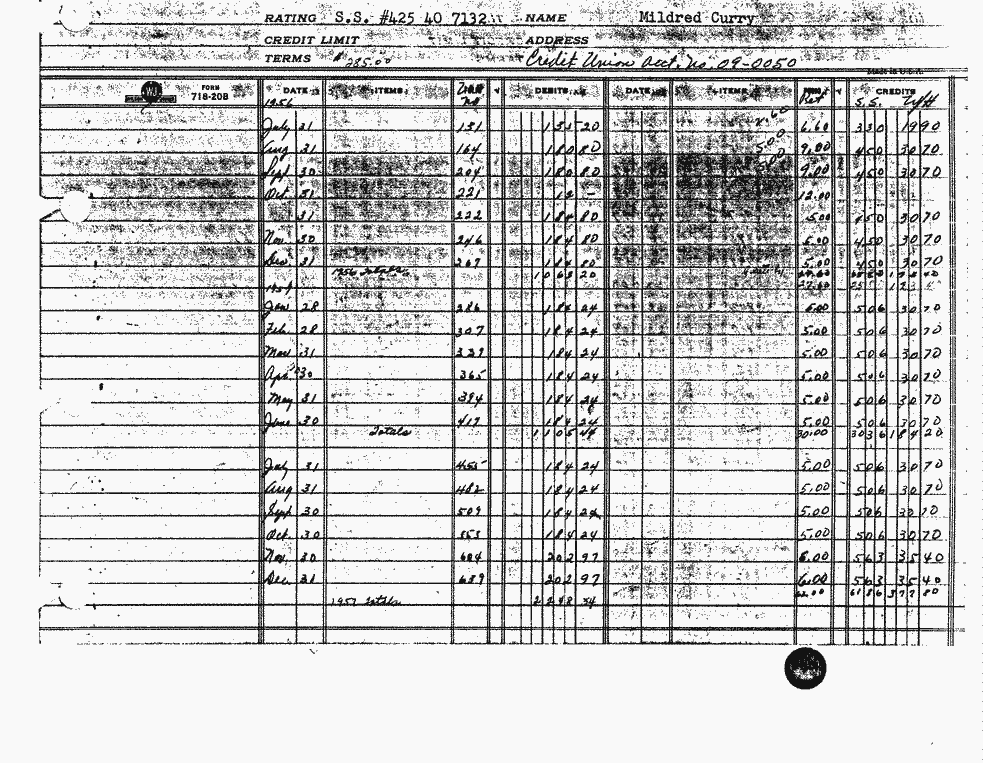 RATING S.S. #425 40 7132 NAME Mildred Curry
CREDIT LIMIT ADDRESS
TERMS $285.00 Credit Union Acct. no. 09-0050
MADE IN U.S.A.
FORM 718-20B DATE ITEMS DEBITS DATE ITEMS Ret CREDITS
1956 no S.S. W/H
July 31 151 155 20 6.60 330 19 90
Aug 31 164 180 80 9.00 450 30 70
Sept 30 204 180 80 9.00 450 30 70
Oct 31 221 12 — 12.00
31 222 184 80 5.00 450 30 70
Nov 30 246 184 80 5.00 450 30 70
Dec 31 267 184 80 5.00 450 30 70
1956 totals 1063 20
1957 27.60
Jan 28 286 184 24 5.00 506 30 70
Feb 28 307 184 24 5.00 506 30 70
Mar 31 329 184 24 5.00 506 30 70
Apr 30 365 184 24 5.00 506 30 70
May 31 394 184 24 5.00 506 30 70
June 30 417 184 24 5.00 506 30 70
Totals 1105 44 30.00 3036 184 20
July 31 455 184 24 5.00 506 30 70
Aug 31 482 184 24 5.00 506 30 70
Sept 30 509 184 24 5.00 506 30 70
Oct. 30 553 184 24 5.00 506 30 70
Nov. 30 604 202 97 6.00 563 35 40
Dec. 31 639 202 97 6.00 563 35 40
62.00 6186 377 80
1957 totals 2248 34